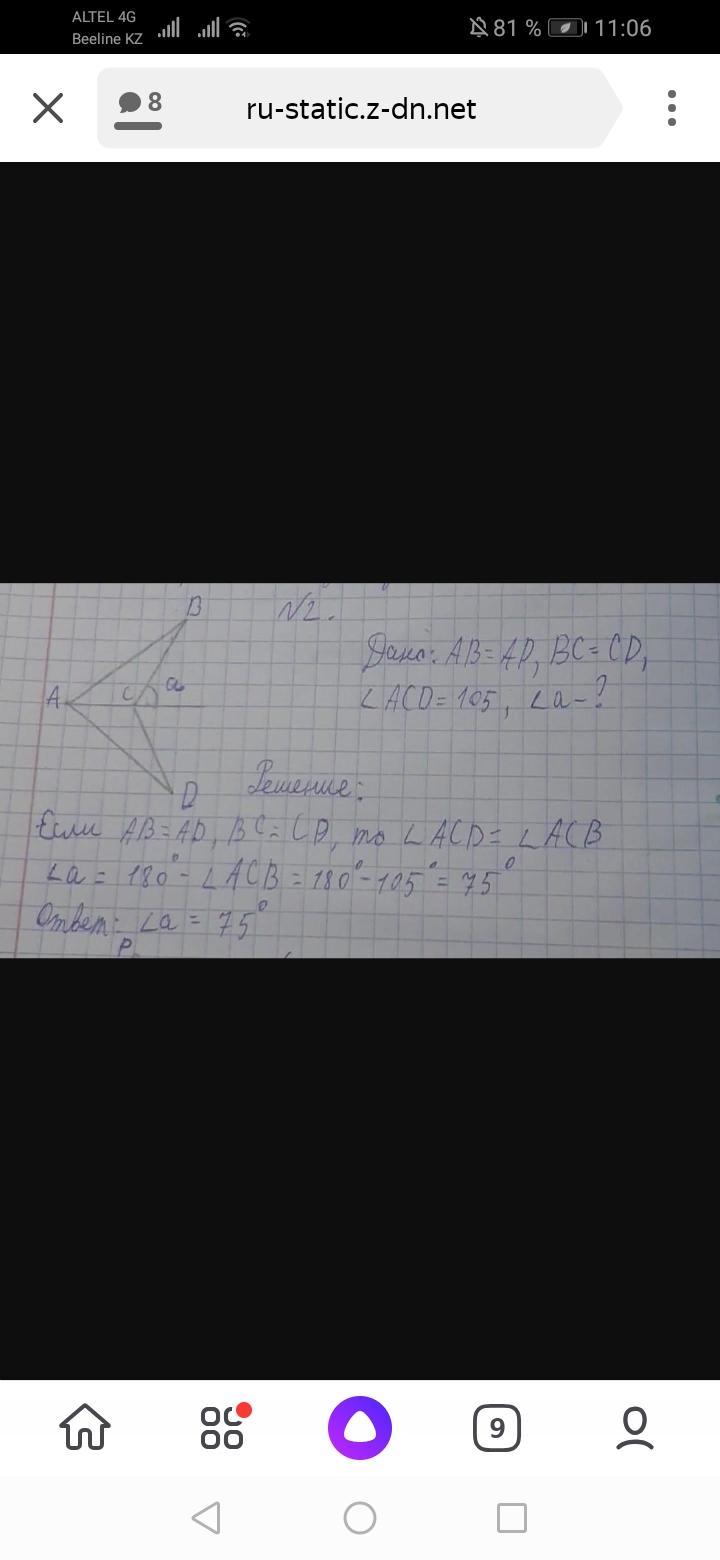 ALTEL 4G
Beeline KZ
81 %
11:06
8
ru-static.z-dn.net
B
N2.
Дано: AB=AD, BC=CD,
A
C
a
∠ACD=105, ∠a-?
D
Решение:
Если AB=AD, BC=CD, то ∠ACD=∠ACB
∠a = 180°-∠ACB=180°-105°=75°
Ответ: ∠a = 75°
P
9